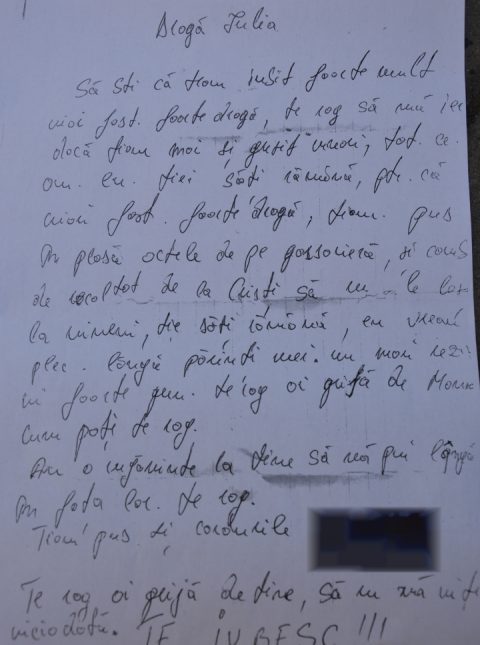 Dragă Iulia
Să sti că team iubit foarte mult
miai fost foarte dragă, te rog să mă ier
dacă team mai și greșit vreun, tot ce
am eu ție săți rămână, ptr. că
miai fost foarte dragă, țiam pus
în plasă actele de pe garsonieră, și
de la Cristi să nu le
la nimeni, ție săți rămână, eu vreau
plec lângă părinți mei. nu mai
foarte greu. te rog ai grijă de
cum poți te rog.
Am o rugăminte la tine să mă pui lângă
în fața lor. te rog.
Țiam pus și cardurile
Te rog ai grijă de tine, să nu mă uiți
niciodată. TE IUBESC !!!